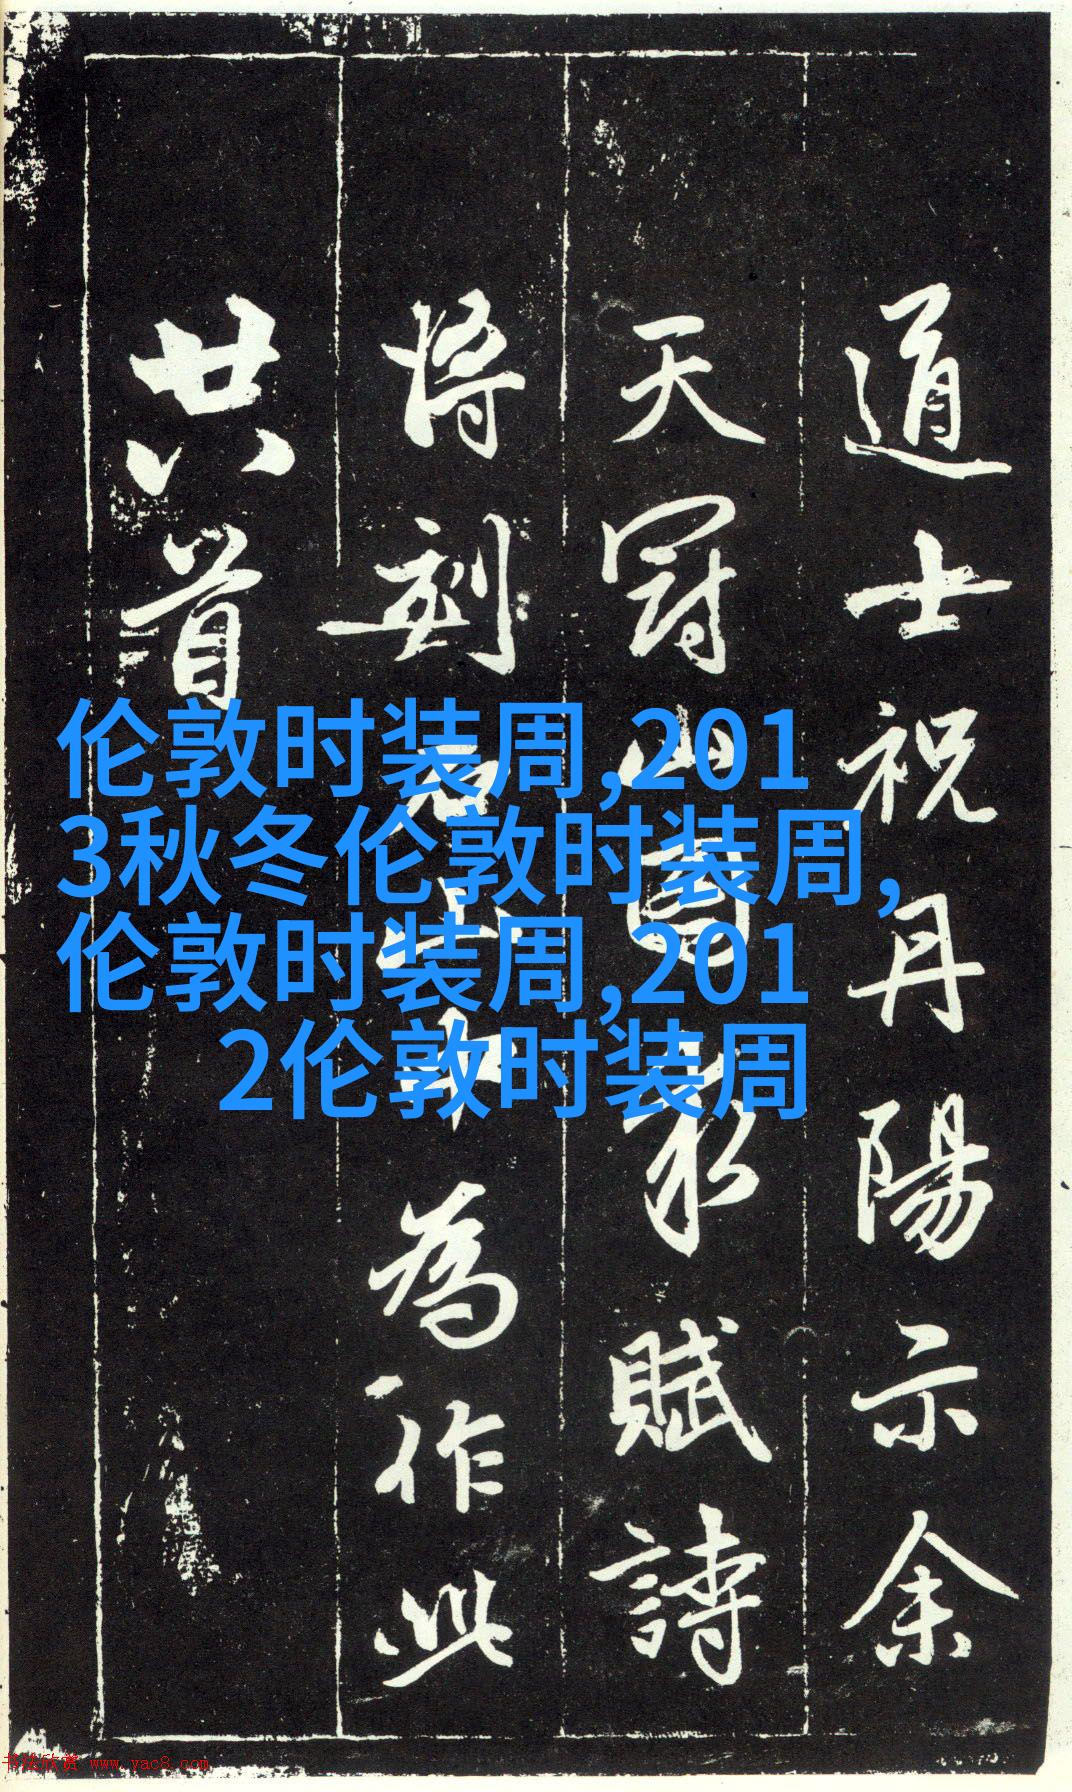 道士祝丹陽示余
天冠山圖求賦詩
將刻石山中為作此
廿八首
伦敦时装周,201
3秋冬伦敦时装周,
伦敦时装周,201
2伦敦时装周
书法欣赏 www.yac8.com